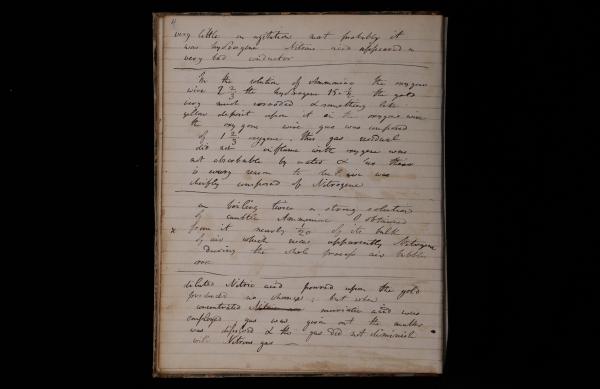 4
very little on agitation not probably it
was hydrogene Nitrous acid appeared a
very bad conductor
In the solution of Ammoniac the oxygene
wire 2 2/3 the hydrogene 15 the gold
very much corroded & something like
yellow deposit upon it in the oxygene wire
the oxygene wire gas was composed
of 1 2/3 oxygene, this gas residual
did not inflame with oxygene was
not absorbable by water & thus there
is every reason to was
cheifly composed of Nitrogene
on boiling twice a strong solution
of caustic Ammoniac I obtained
x from it nearly 1/20 of its bulk
of air which was apparently Nitrogene
During the whole process air bubbles
rose
diluted Nitric acid poured upon the gold
produced no change; but when
concentrated muriatic acid was
employed, gas was given out the
was dissolved & the gas did not diminish
with Nitrous gas —